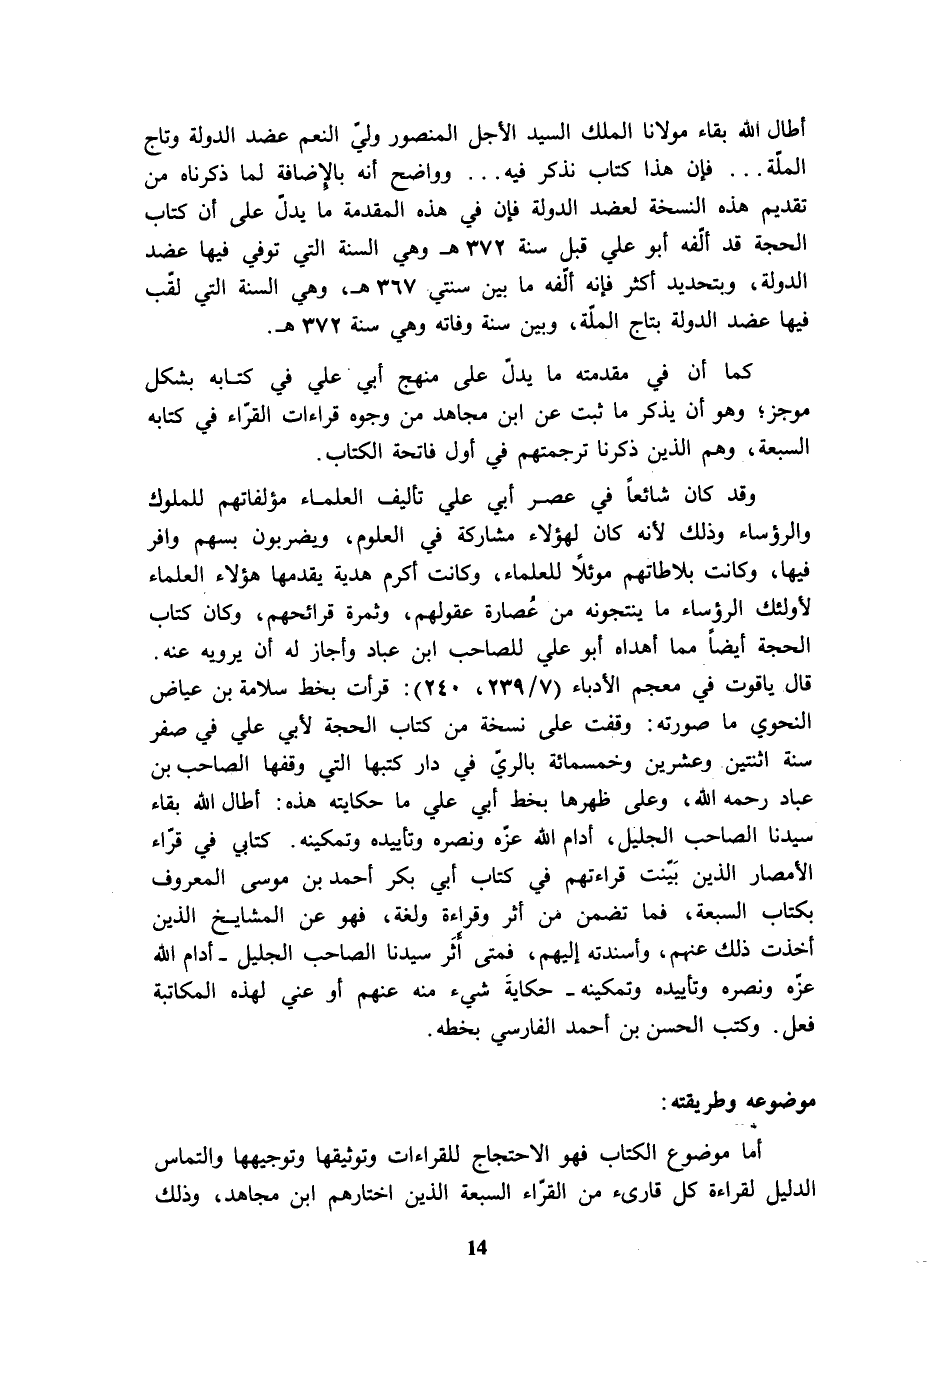 أطال الله بقاء مولانا الملك السيد الأجل المنصور وليّ النعم عضد الدولة وتاج
الملّة... فإن هذا كتاب نذكر فيه... وواضح أنه بالإضافة لما ذكرناه من
تقديم هذه النسخة لعضد الدولة فإن في هذه المقدمة ما يدلّ على أن كتاب
الحجة قد ألّفه أبو علي قبل سنة ٣٧٢ هـ وهي السنة التي توفي فيها عضد
الدولة، وبتحديد أكثر فإنه ألّفه ما بين سنتي ٣٦٧ هـ، وهي السنة التي لقّب
فيها عضد الدولة بتاج الملّة، وبين سنة وفاته وهي سنة ٣٧٢ هـ.
كما أن في مقدمته ما يدلّ على منهج أبي علي في كتابه بشكل
موجز؛ وهو أن يذكر ما ثبت عن ابن مجاهد من وجوه قراءات القرّاء في كتابه
السبعة، وهم الذين ذكرنا ترجمتهم في أول فاتحة الكتاب.
وقد كان شائعاً في عصر أبي علي تأليف العلماء مؤلفاتهم للملوك
والرؤساء وذلك لأنه كان لهؤلاء مشاركة في العلوم، ويضربون بسهم وافر
فيها، وكانت بلاطاتهم موئلاً للعلماء، وكانت أكرم هدية يقدمها هؤلاء العلماء
لأولئك الرؤساء ما ينتجونه من عُصارة عقولهم، وثمرة قرائحهم، وكان كتاب
الحجة أيضاً مما أهداه أبو علي للصاحب ابن عباد وأجاز له أن يرويه عنه.
قال ياقوت في معجم الأدباء (٧/٢٣٩، ٢٤٠): قرأت بخط سلامة بن عياض
النحوي ما صورته: وقفت على نسخة من كتاب الحجة لأبي علي في صفر
سنة اثنتين وعشرين وخمسمائة بالريّ في دار كتبها التي وقفها الصاحب بن
عباد رحمه الله، وعلى ظهرها بخط أبي علي ما حكايته هذه: أطال الله بقاء
سيدنا الصاحب الجليل، أدام الله عزّه ونصره وتأييده وتمكينه. كتابي في قرّاء
الأمصار الذين بَيّنت قراءتهم في كتاب أبي بكر أحمد بن موسى المعروف
بكتاب السبعة، فما تضمن من أثر وقراءة ولغة، فهو عن المشايخ الذين
أخذت ذلك عنهم، وأسندته إليهم، فمتى أَثَر سيدنا الصاحب الجليل ـ أدام الله
عزّه ونصره وتأييده وتمكينه ـ حكايةَ شيء منه عنهم أو عني لهذه المكاتبة
فعل. وكتب الحسن بن أحمد الفارسي بخطه.
موضوعه وطريقته:
أما موضوع الكتاب فهو الاحتجاج للقراءات وتوثيقها وتوجيهها والتماس
الدليل لقراءة كل قارىء من القرّاء السبعة الذين اختارهم ابن مجاهد، وذلك
14